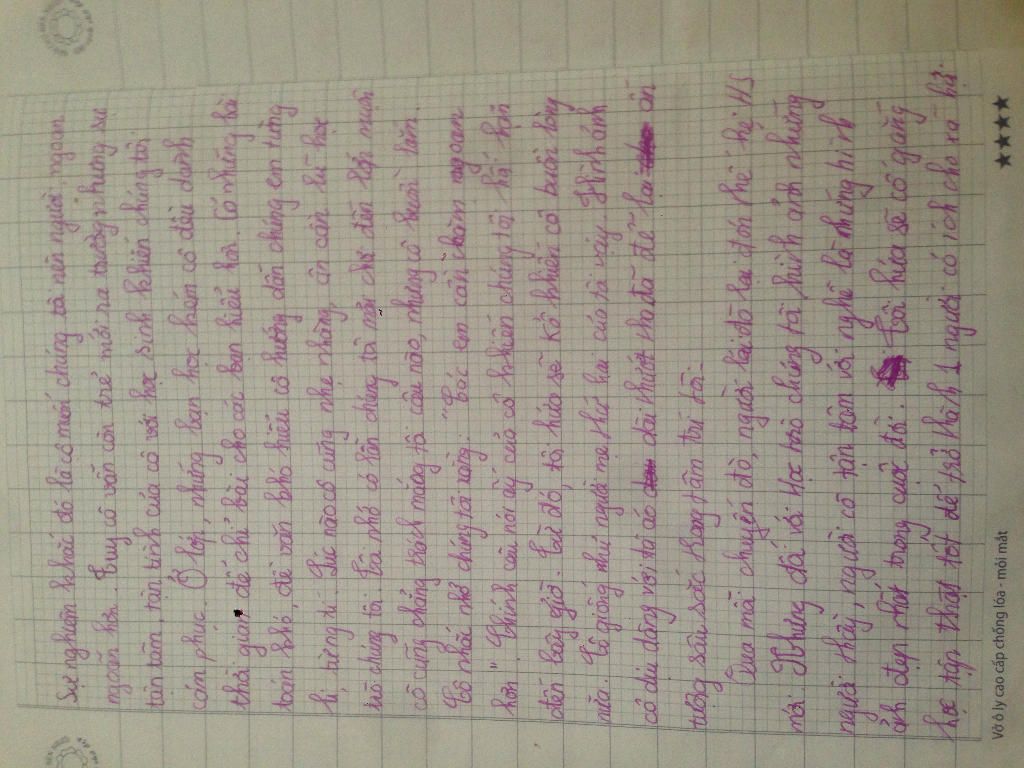 Sự nghiêm khắc đó là cô muốn chúng tôi nên người, ngoan
ngoãn hơn. Tuy cô vẫn còn trẻ mới ra trường nhưng sự
tận tâm, tận tình của cô với học sinh khiến chúng tôi
cảm phục. Ở lớp, những bạn học kém cô đều dành
thời gian để chỉ bài cho các bạn hiểu hơn. Có những bài
toán khó, đề văn khó hiểu cô hướng dẫn chúng em từng
li, từng tí. Lúc nào cô cũng nhẹ nhàng, ân cần khi học
trò chúng tôi. Tôi nhớ có lần chúng tôi mải chơi đến lớp muộn
cô cũng chẳng trách mắng tôi câu nào, nhưng cô buồn lắm.
Cô nhắc nhở chúng tôi rằng: "Các em cần chăm ngoan
hơn". Chính câu nói ấy của cô khiến chúng tôi hối hận
đến bây giờ. Từ đó, tôi hứa sẽ ko khiến cô buồn lòng
nữa. Cô giống như người mẹ thứ hai của tôi vậy. Hình ảnh
cô dịu dàng với tà áo dài thướt tha đã để lại ấn
tượng sâu sắc trong tâm trí tôi.
Qua mỗi chuyến đò, người lái đò lại đón thế hệ HS
mới. Nhưng đối với học trò chúng tôi hình ảnh những
người thầy, người cô tận tâm với nghề là những hình
ảnh đẹp nhất trong cuộc đời. Tôi hứa sẽ cố gắng
học tập thật tốt để trở thành 1 người có ích cho xã hội.
Vở ô ly cao cấp chống lóa - mỏi mắt